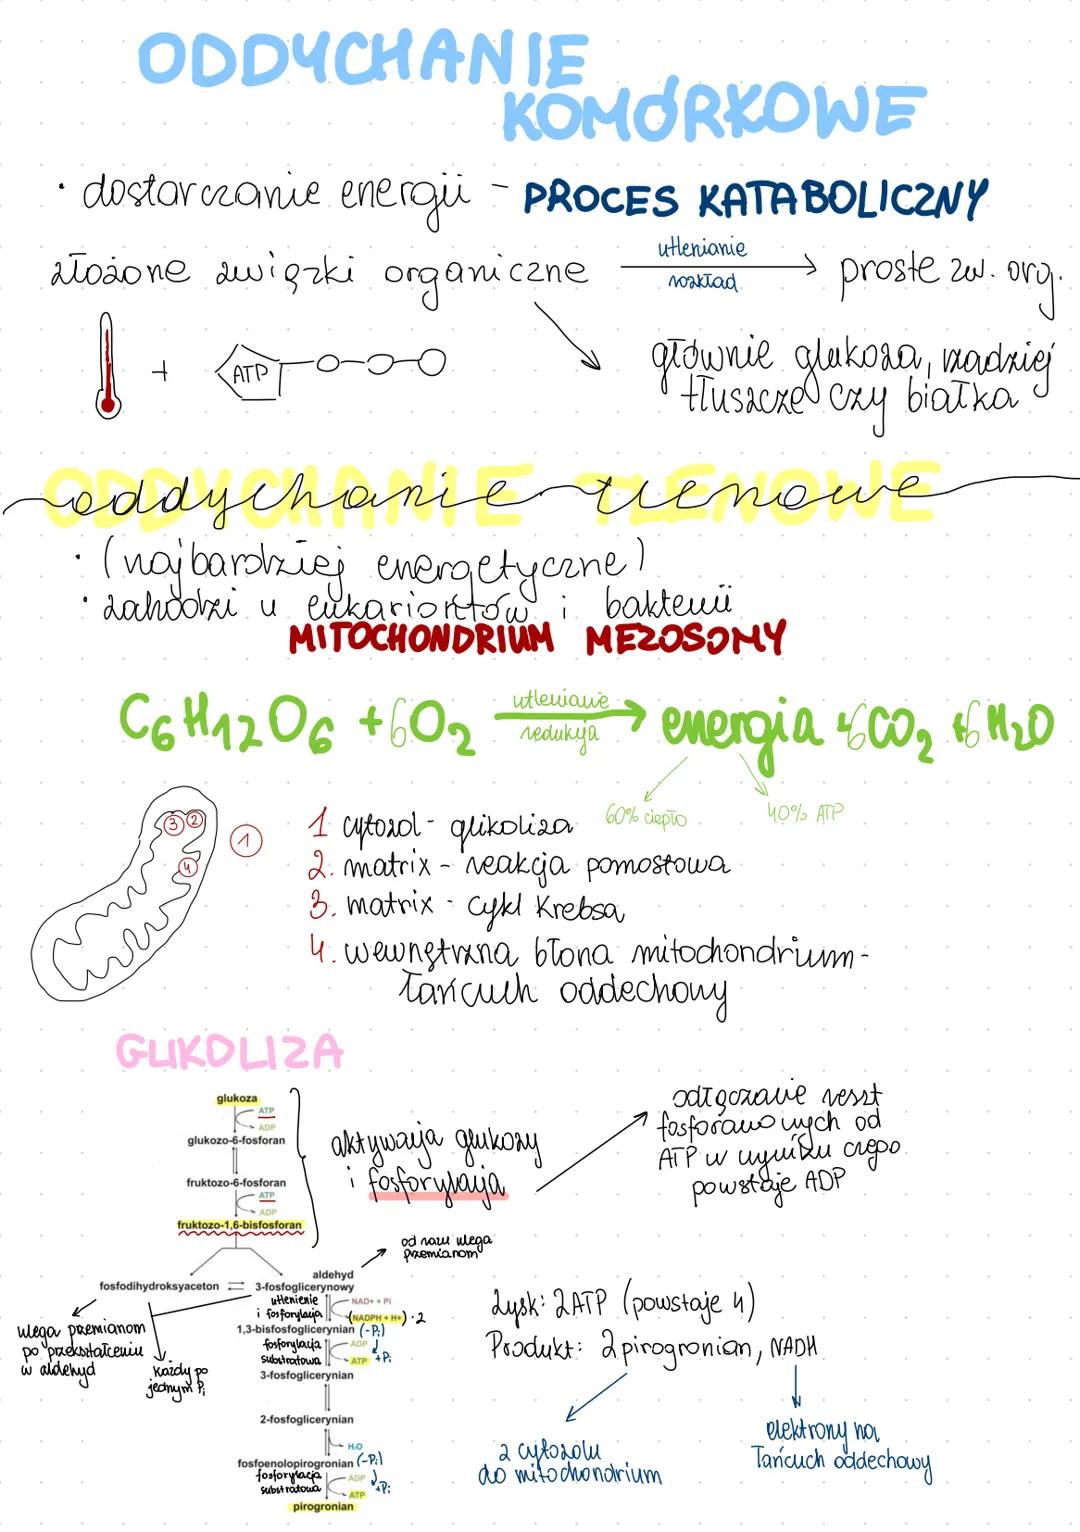 ODDYCHANIE
KOMÓRKOWE
• dostarczanie energii - PROCES KATABOLICZNY
złożone związki organiczne utlenianie rozkład → proste zw. org.
+ ATP
głównie glukoza, rzadziej
tłuszcze czy białka
ODDYCHANIE TLENOWE
oddychanie tlenowe
• (najbardziej energetyczne)
• zachodzi u eukariontów i bakterii
MITOCHONDRIUM MEZOSOMY
C6H12O6 + 6O2 utlenianie redukcja → energia + 6CO2 + 6H2O
60% ciepło 40% ATP
3 2 1
4
1 cytozol - glikoliza
2. matrix - reakcja pomostowa
3. matrix - cykl Krebsa
4. wewnętrzna błona mitochondrium -
łańcuch oddechowy
GLIKOLIZA
glukoza
ATP
ADP
glukozo-6-fosforan
fruktozo-6-fosforan
ATP
ADP
fruktozo-1,6-bisfosforan
aktywacja glukozy
i fosforylacja
odłączanie reszt
fosforanowych od
ATP w wyniku czego
powstaje ADP
od razu ulega
przemianom
fosfodihydroksyaceton
aldehyd
3-fosfoglicerynowy
ulega przemianom
po przekształceniu
w aldehyd
każdy po
jednym Pi
utlenienie
i fosforylacja
NAD+ + Pi
(NADPH + H+) · 2
1,3-bisfosfoglicerynian (-Pi)
fosforylacja
substratowa
ADP
ATP +Pi
3-fosfoglicerynian
2-fosfoglicerynian
H2O
fosfoenolopirogronian (-Pi)
fosforylacja
substratowa
ADP
ATP +Pi
pirogronian
Zysk: 2ATP (powstaje 4)
Produkt: 2 pirogronian, NADH
z cytozolu
do mitochondrium
elektrony na
łańcuch oddechowy